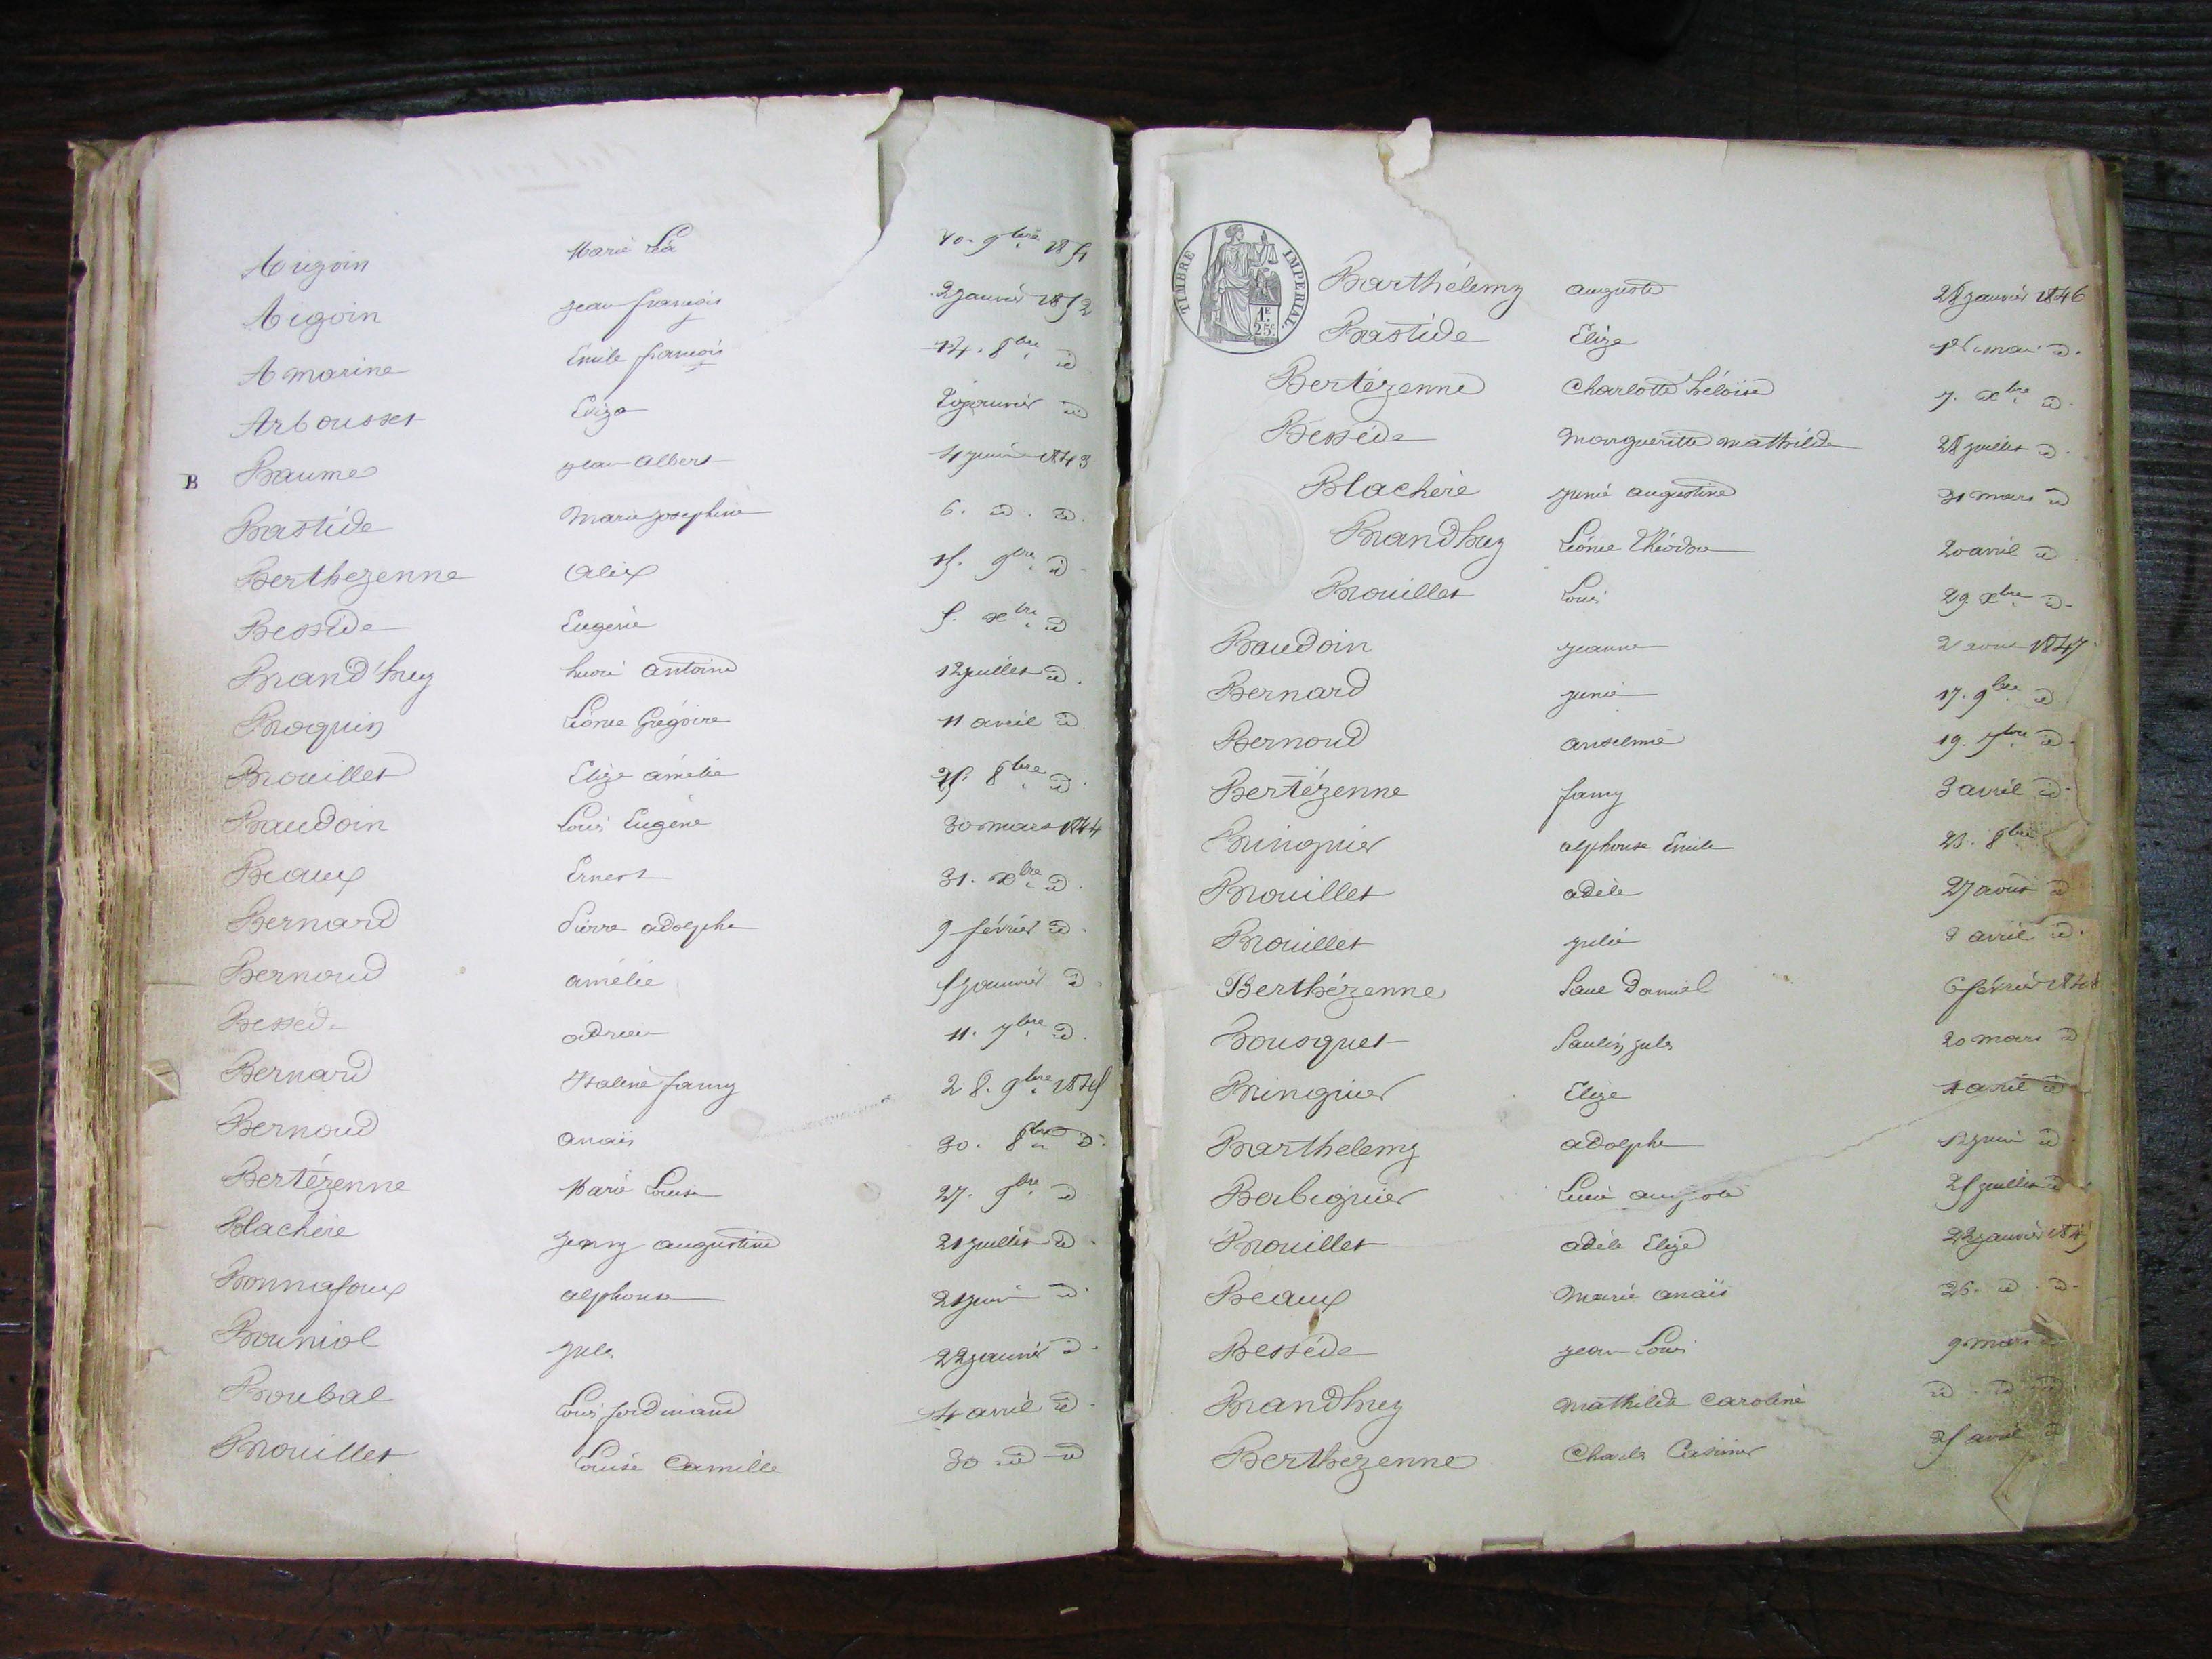 Aigoin Marie Léa 10. 9bre 1851
Aigoin jean françois 2 janvier 1852
Amarine Émile françois 14. 8bre id
Arbousset Eliza janvier id
B Baume jean albert 4 juin 1843
Bastide Marie josephine 6. id. id.
Berthezenne Alix 15. 9bre id
Bessède Eugénie 5. xbre id
Brand'huy henri Antoine 12 juillet id.
Broquin Léonce Grégoire 11 avril id
Brouillet Elize amélie 25. 8bre id.
Baudoin Louis Eugène 30 mars 1844
Beaux Ernest 31. xbre id.
Bernard Pierre adolphe 9 février id.
Bernoud amélie 5 janvier id.
Bessède adrien 11. 7bre id.
Bernard Isaline fanny 28. 9bre 1845
Bernoud anaïs 30. 8bre id.
Bertézenne Marie Louise 27. 9bre id
Blachère jenny augustine 21 juillet id.
Bonnafoux alphonse 21 juin id.
Bouniol jules 22 janvier id.
Boubal Louis ferdinand 4 avril id.
Brouillet Louise Camille 30 id id
TIMBRE IMPERIAL.
1F
25c
Barthélemy auguste 28 janvier 1846
Bastide Elize 1er mai id.
Bertézenne Charlotte héloïse 7. xbre id.
Bessède Margueritte mathilde 28 juillet id.
Blachère junie augustine 31 mars id
Brandhuy Léonce Théodore 20 avril id.
Brouillet Louis 29 xbre id.
Baudoin jeanne 2 aout 1847.
Bernard junie 17. 9bre id
Bernoud anselme 19. 7bre id.
Bertézenne fanny 3 avril id.
Bringuier alphonse Emile 23. 8bre
Brouillet adèle 27 aout id
Brouillet julie 8 avril id.
Berthézenne Paul Daniel 6 février 1848
Bousquet Paulin jules 20 mars id
Bringuier Elize 4 avril id
Barthelemy adolphe 12 juin id.
Berbiguier Lucie augusta 25 juillet id.
Brouillet adèle Elize 22 janvier 1849
Beaux Marie anaïs 26. id. id.
Bessède jean Louis 9 mars
Brandhuy Mathilde Caroline id. id id.
Berthezenne Charles Casimir 25 avril id